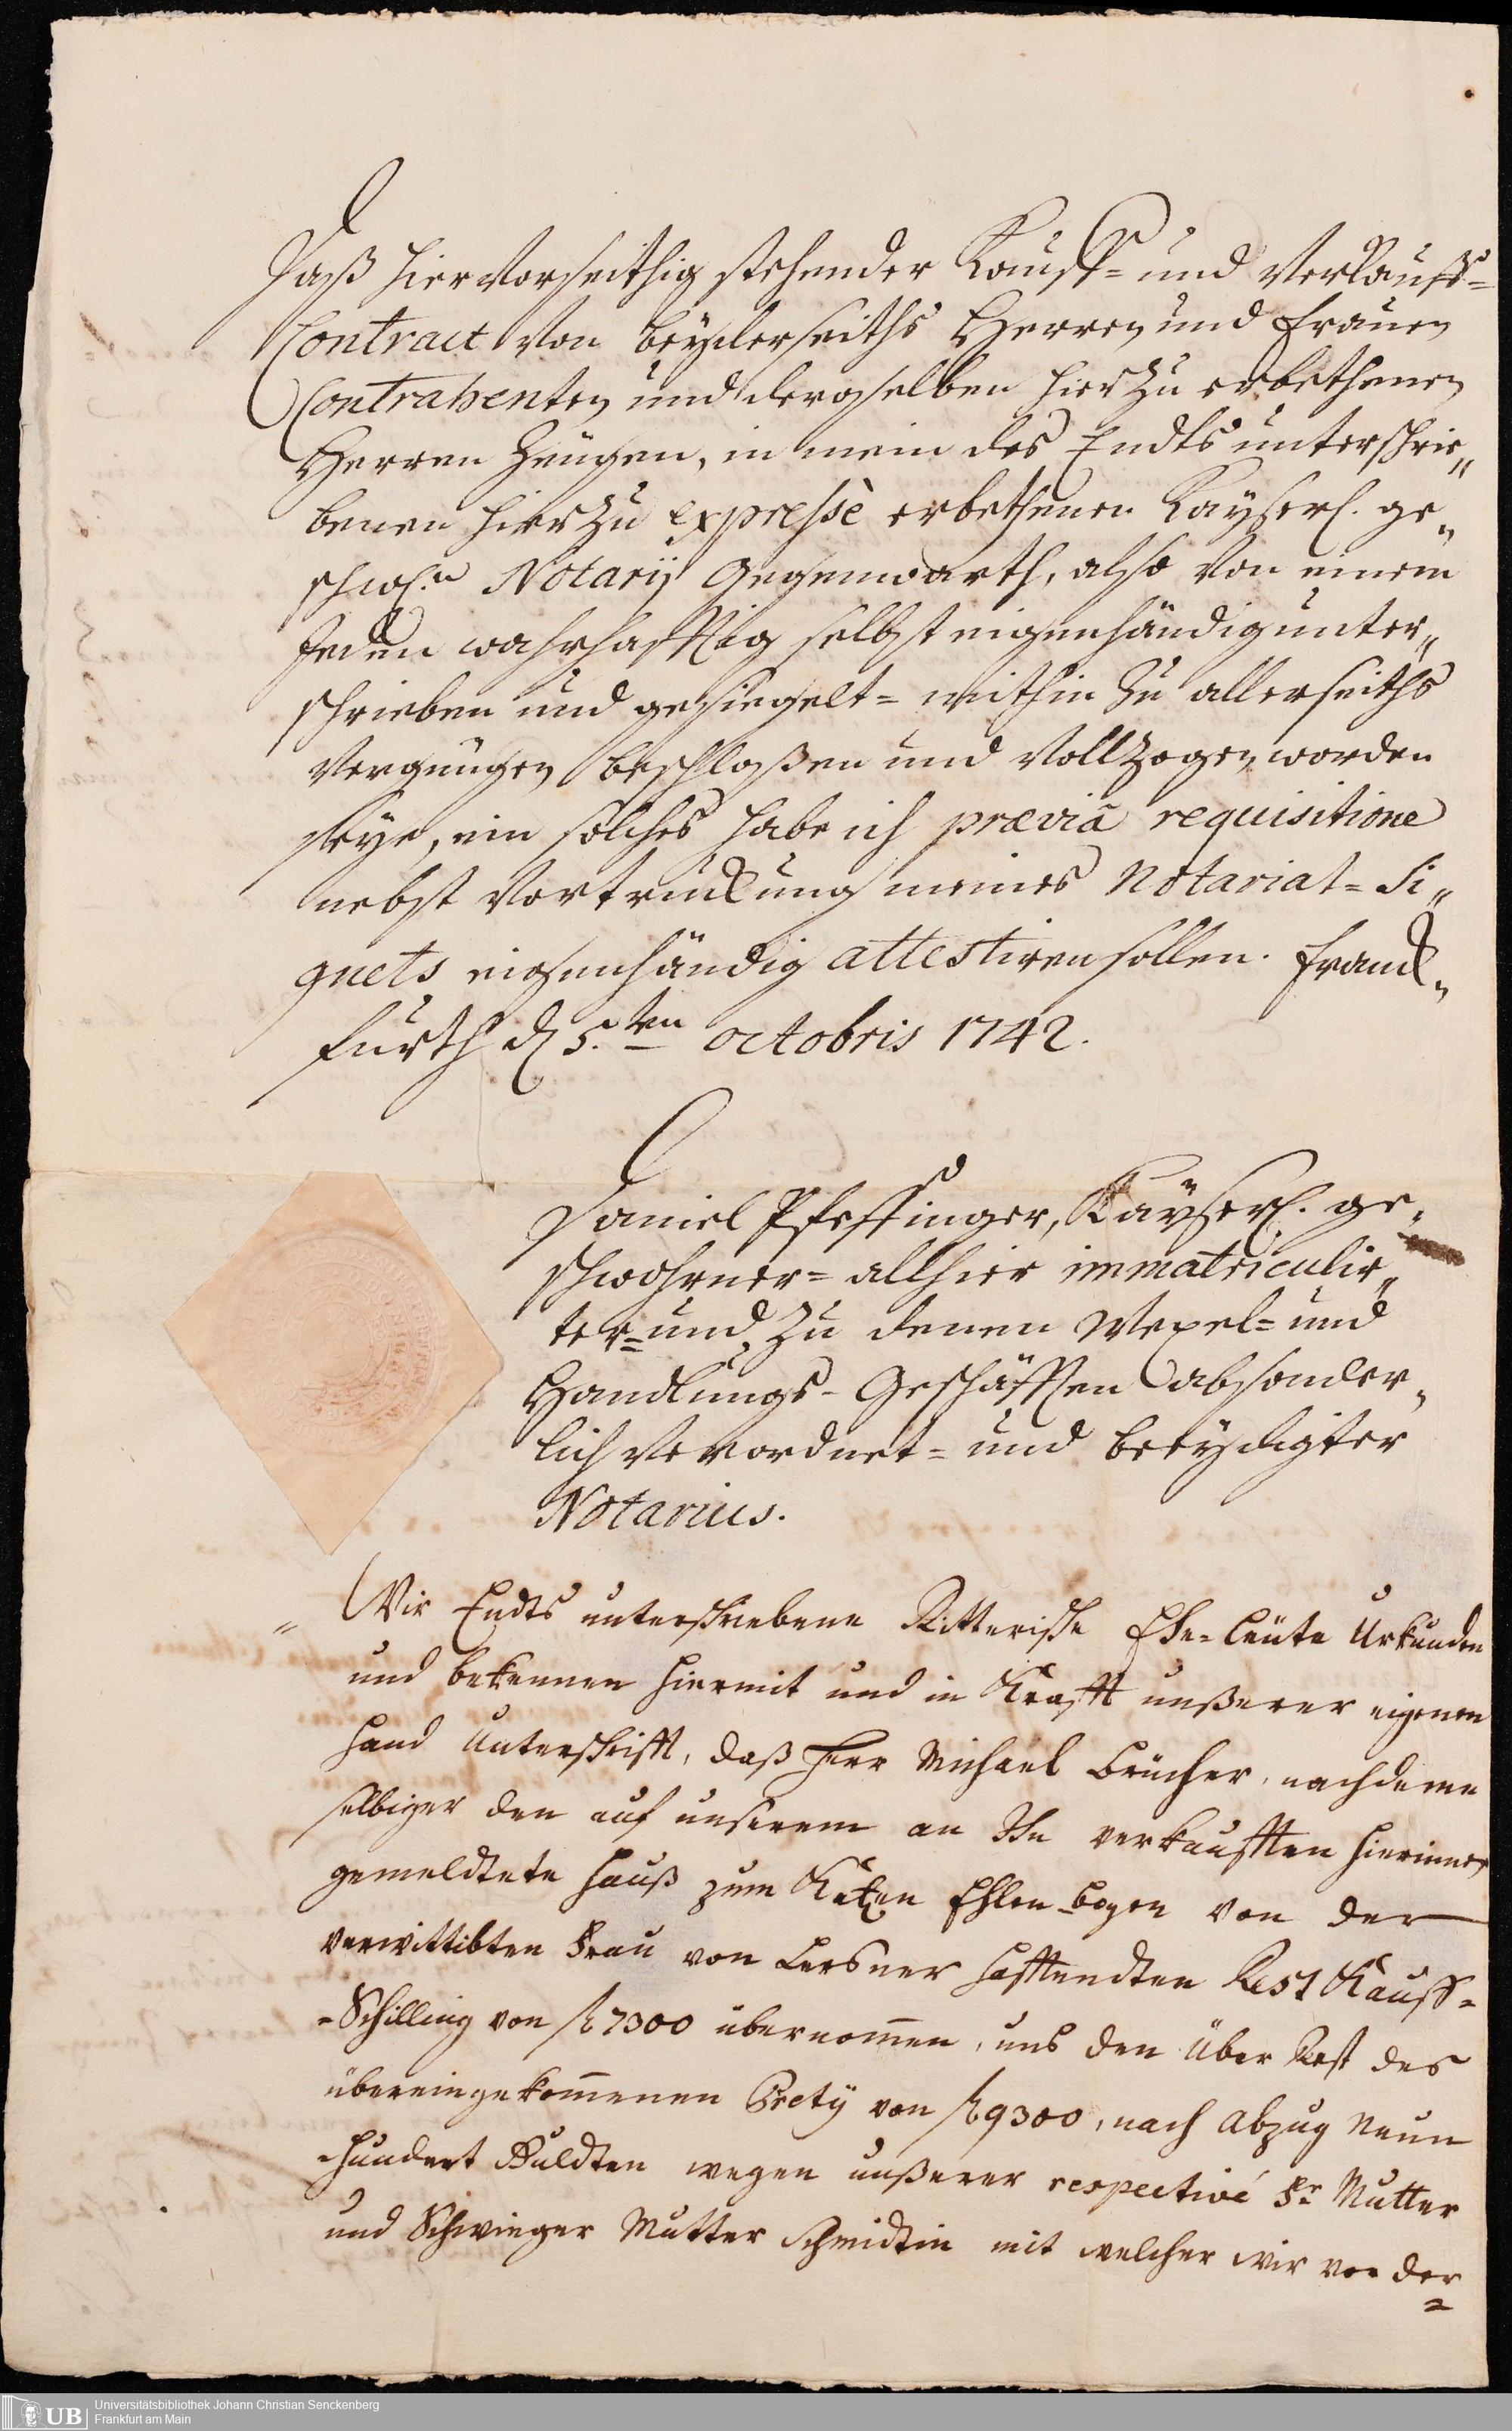 Daß hiervorseithig stehender Kauff= und Verkauffs=
Contract von beyderseiths Herren und Frauen
Contrahenten und deroselben hierzu erbethenen
Herren Zeugen, in mein des Endts unterschrie„
benen hierzu expressè erbethenen Kayserl. ge„
schw. Notarij Gegenwarth, also von einem
Jeden wahrhafftig selbst eigenhändig unter„
schrieben und gesiegelt= mithin zu allerseiths
Vergnügen beschloßen und vollzogen worden
seye, ein solches habe ich præviâ requisitione
nebst Vortruckung meines Notariat=Si„
gnets eigenhändig attestiren sollen. Franck„
furth d 5.ten octobris 1742.
Daniel Pfeffinger, Kayserl. ge„
schwohrner= allhier immatriculir„
ter= und zu denen Wexel= und
Handlungs-Geschäfften absonder„
lich verordnet= und beeydigter
Notarius.
„ Wir Endts unterschriebene Ritterische Ehe=Leüte Urkunden
und bekennen hiermit und in Krafft unßerer eigenen
Hand Unterschrifft, daß Herr Michael Brücher, nachdeme
selbiger den auf unserem an Ihn verkaufften hierinnen
gemeldtete Hauß zum Katzen Ehlen-bogen von der
verwittibten Frau von Lersner hafftendten Rest Kauff=
=Schilling von fl 7300 übernom̅en, uns den Über Rest des
übereingekom̅enen Prety von fl 9300, nach Abzug Neun
hundert Guldten wegen unßerer respectivè Fr Mutter
und Schwieger Mutter Schmidtin mit welcher wir von der
=
Universitätsbibliothek Johann Christian Senckenberg
Frankfurt am Main
UB